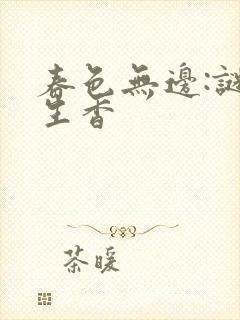 春色無邊:謎
生香
茶暖